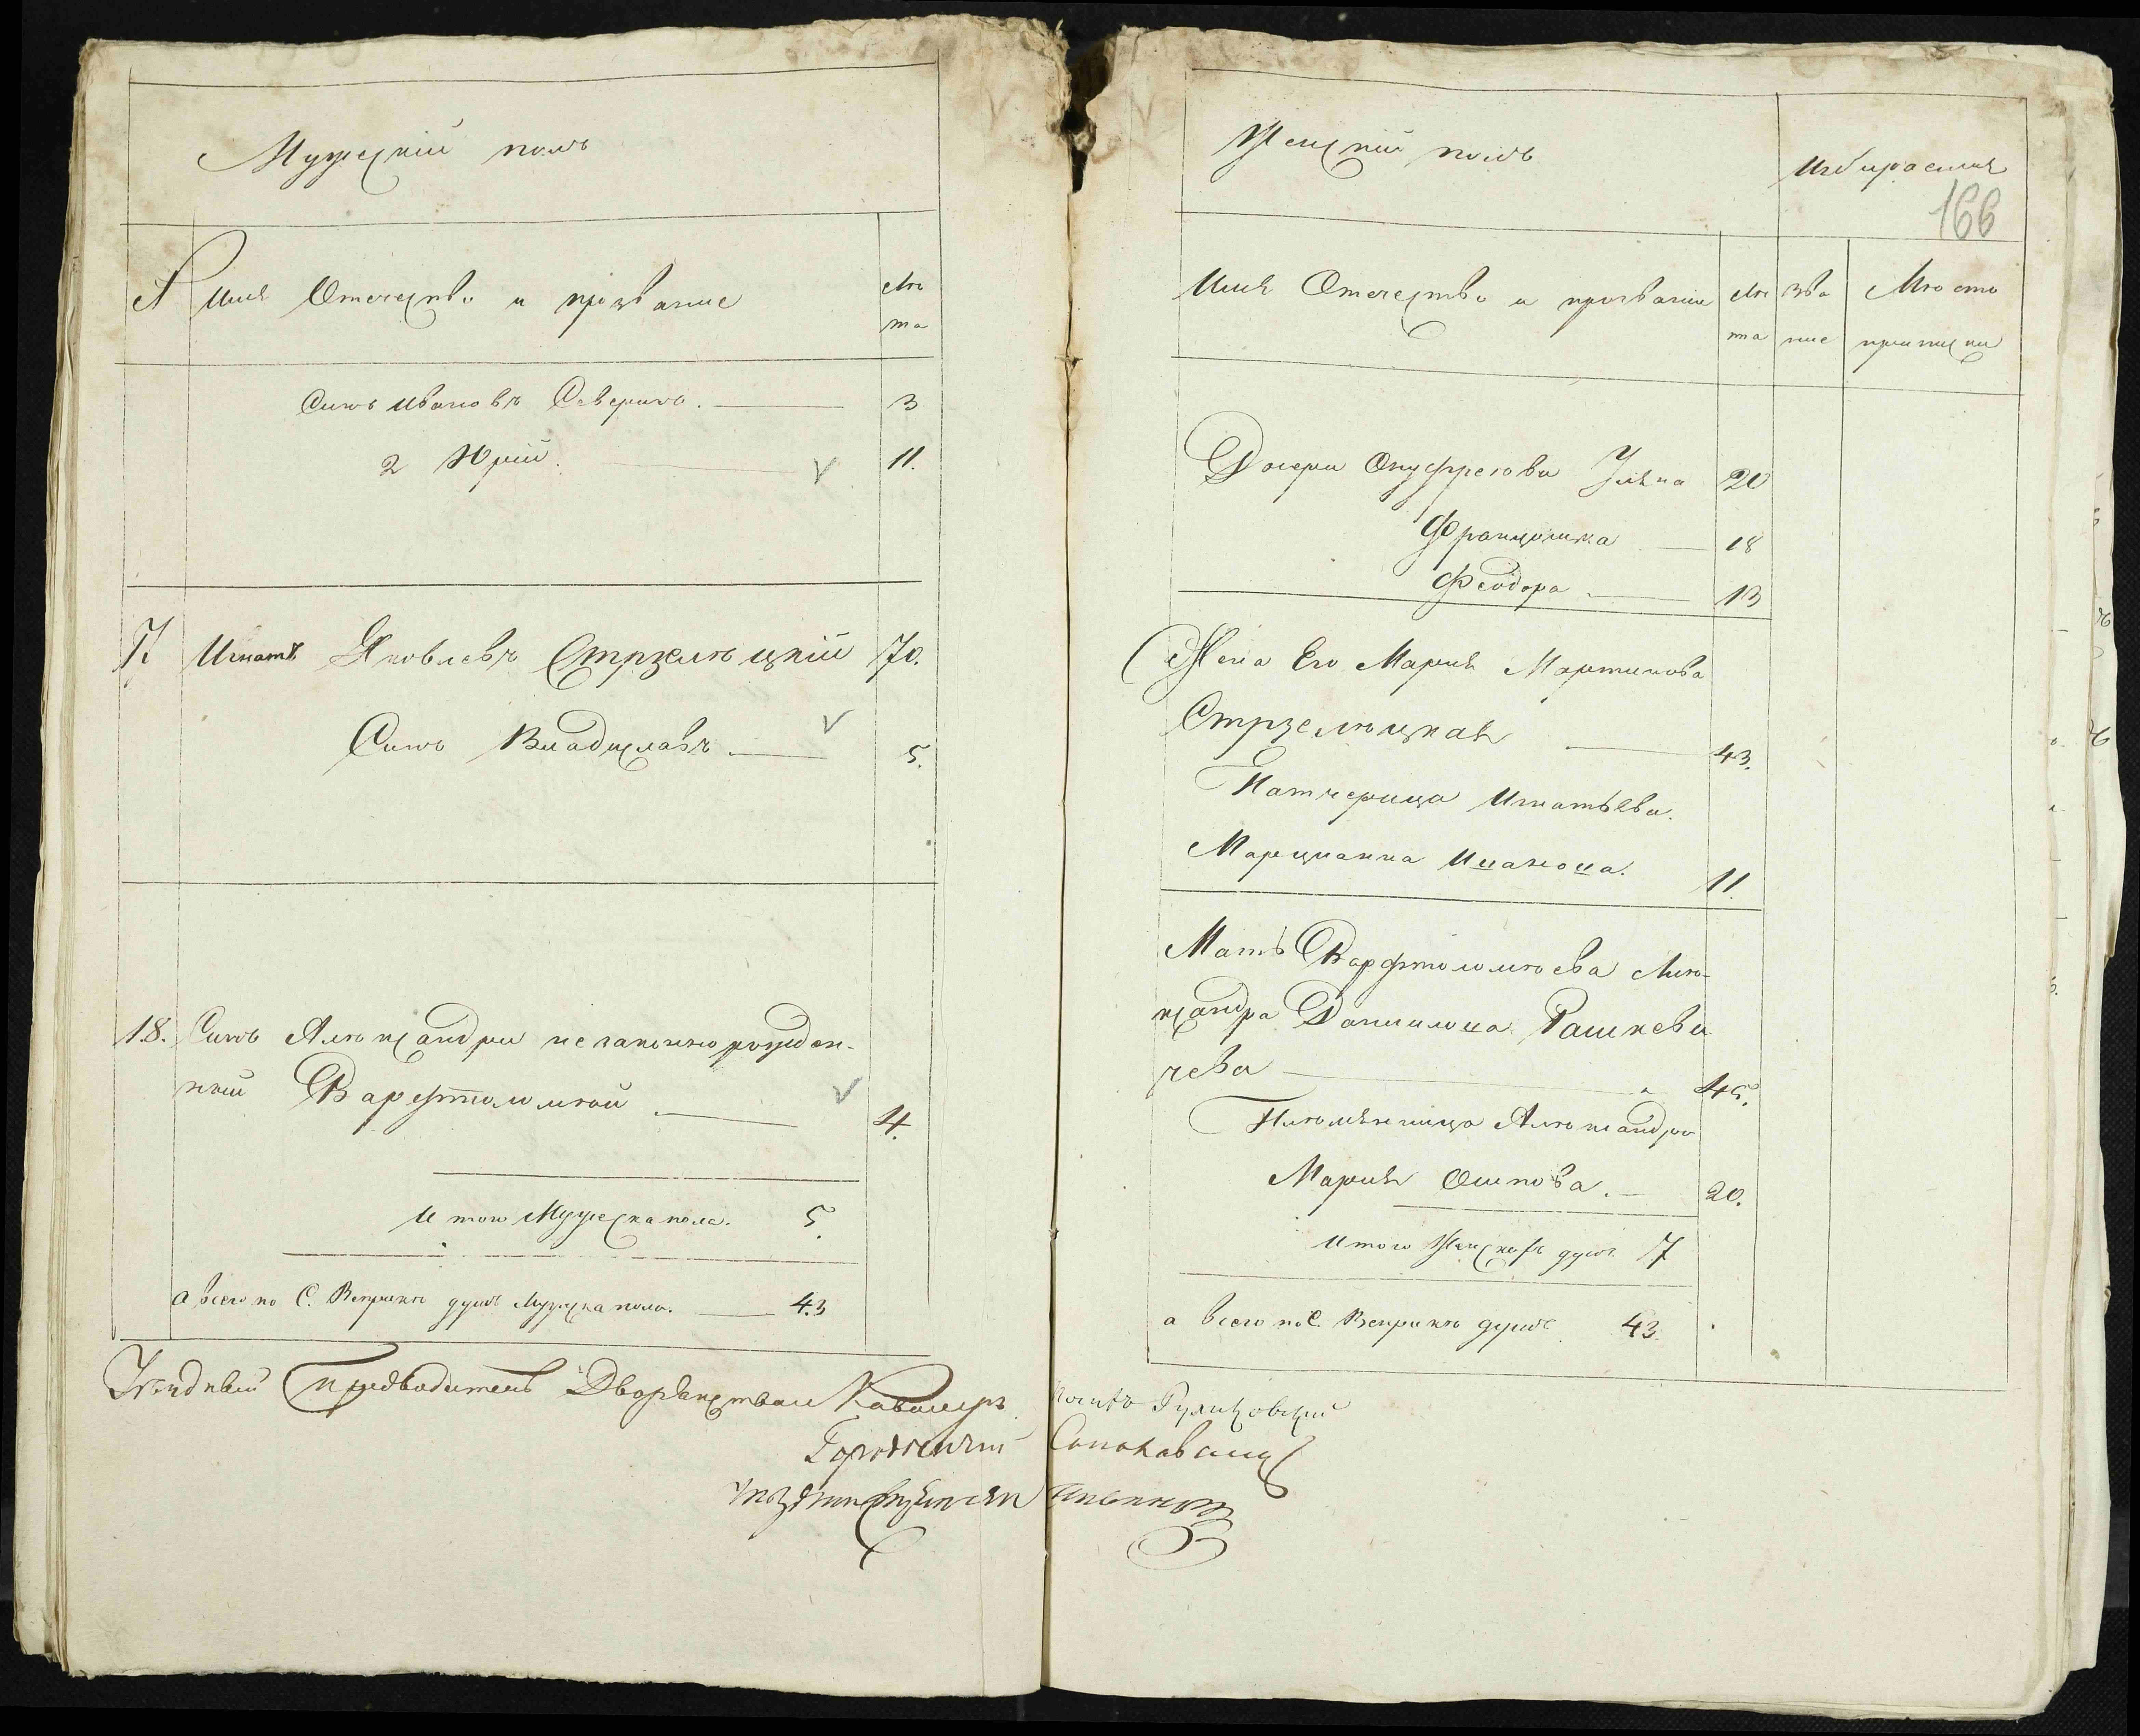 Мужескій полъ
№ Имя Отечество и прозваніе Лѣта
Сынъ Ивановъ Северинъ. 3
2 Юрій. 11.
7. Игнатъ Яковлевъ Стрзелѣцкій 70.
Сынъ Владиславъ 5.
18. Сынъ Алѣксандри незаконнорожден-
ный Варфтоломѣй 4.
Итого Мужеска пола. 5.
а всего по С. Веприкѣ душъ Мужеска пола. 43
Женскій полъ
166
Имя Отечество и прозваніе Лѣта Званіе Мѣсто приписки
Дочери Онуфреюви Уляна 20
Францышка 18
Феодора 13
Жена Его Марія Мартинова
Стрзелѣцкая 43.
Патчерица Игнатьева.
Марцианна Иванова. 11.
Мать Варфтоломѣева Алѣ-
ксандра Данилова Рашкеви
чева 45.
Племянница Алѣксандри
Марія Осипова. 20.
Итого Женскахъ душъ 7
а всего по С. Веприкѣ душъ 43.
Уѣздный Предводитель Дворянства и Кавалеръ Руликовскій
Городничій